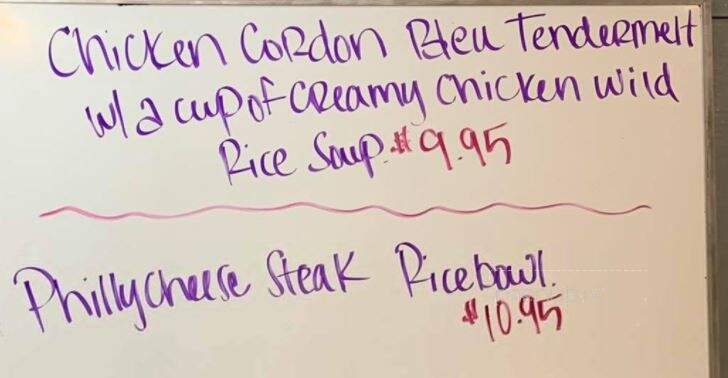 Chicken Cordon Bleu Tendermelt
w/a cup of creamy chicken wild
Rice Soup. $9.95
Phillycheese Steak Ricebowl.
$10.95